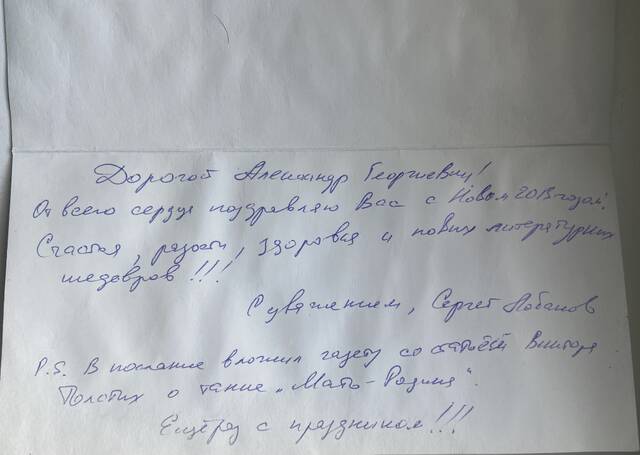 Дорогой Александр Георгиевич!
От всего сердца поздравляю Вас с Новым 2013 годом!
Счастья, радости, здоровья и новых литературных
шедевров!!!
С уважением, Сергей Лобанов
P.S. В послание вложил газету со статьёй Виктора
Толстых о танке „Мать-Родина".
Ещё раз с праздником!!!